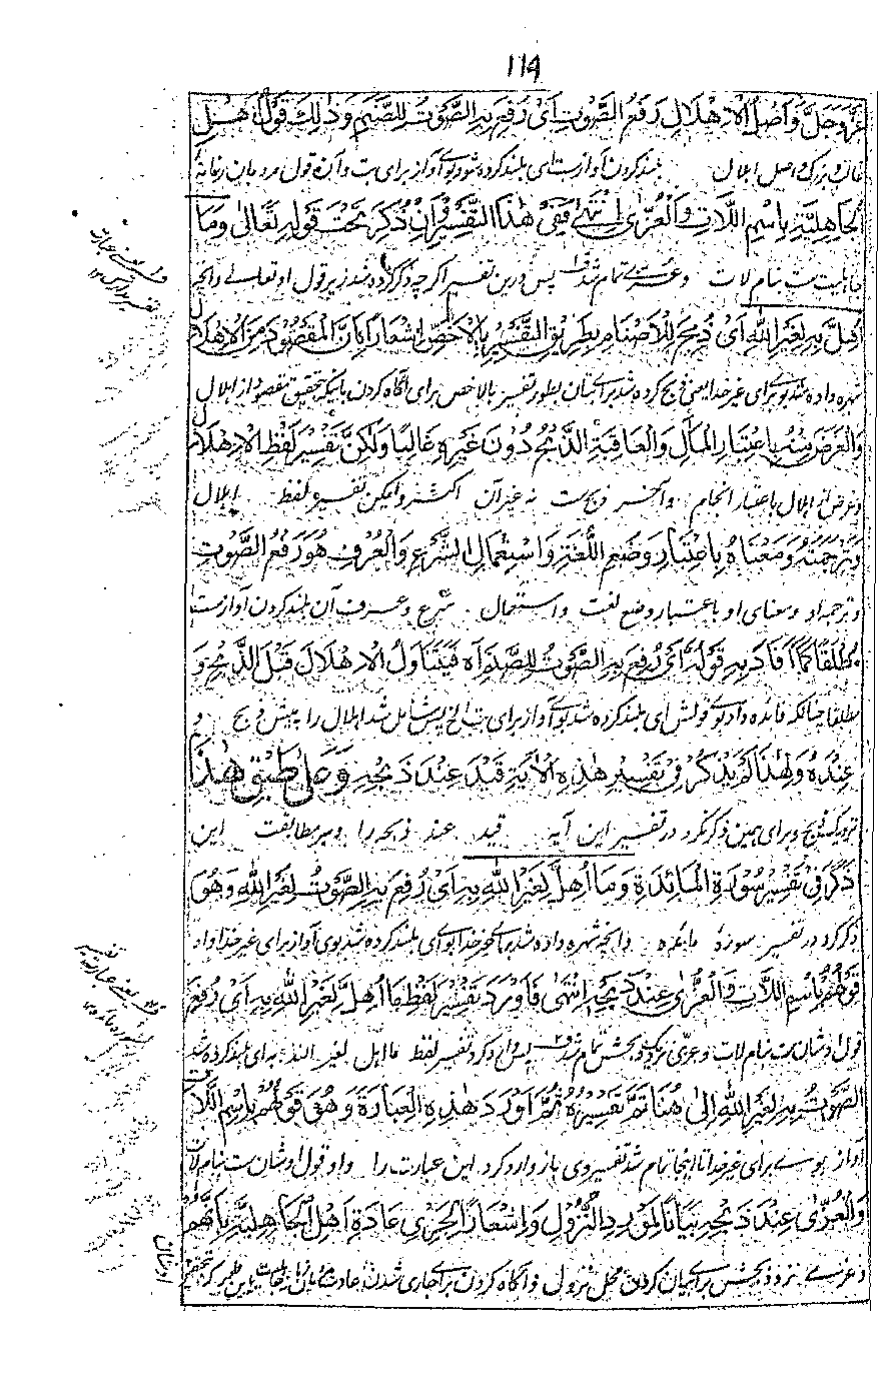 114
عَزَّوَجَلَّ وَاَصْلُ الْاِهْلَالِ رَفْعُ الصَّوْتِ اَیْ رُفِعَ بِهِ الصَّوْتُ لِلصَّنَمِ وَذٰلِكَ قَوْلُ اَهْلِ
غالب و بزرگ و اصل اہلال بلند کردن آواز ست ای بلند کرده شود بوی آواز برای بت و آن قول مردمان زمانۂ
الْجَاهِلِيَّةِ بِاسْمِ اللَّاتِ وَالْعُزّٰی اِنْتَهٰی فَفِیْ هٰذَا التَّفْسِيْرِ وَاِنْ ذُكِرَ تَحْتَ قَوْلِهٖ تَعَالٰی وَمَا
جاہلیت ست بنام لات و عزے تمام شد پس درین تفسیر اگرچه ذکر کرده شد زیر قول او تعالے وانچہ
اُهِلَّ بِهٖ لِغَيْرِ اللّٰهِ اَیْ ذُبِحَ لِلْاَصْنَامِ بِطَرِيْقِ التَّفْسِيْرِ بِالْاَخَصِّ اِشْعَارًا بِاَنَّ الْمَقْصُوْدَ مِنَ الْاِهْلَالِ
شہره داده شد بوی برای غیر خدا یعنی ذبح کرده شد برای بتان بطور تفسیر بالاخص برای آگاه کردن باینکہ تحقیق مقصود از اہلال
وَالْغَرَضَ مِنْهُ بِاعْتِبَارِ الْمَآلِ وَالْعَاقِبَةِ الذَّبْحُ دُوْنَ غَيْرِهٖ غَالِبًا وَلٰكِنَّ تَفْسِيْرَ لَفْظِ الْاِهْلَالِ
وغرض از اہلال باعتبار انجام وآخر ذبح ست نہ غیر آن اکثر ولیکن تفسیر لفظ اہلال
وَتَرْجَمَتُهٗ وَمَعْنَاهُ بِاعْتِبَارِ وَضْعِ اللُّغَةِ وَاسْتِعْمَالِ الشَّرْعِ وَالْعُرْفِ هُوَ رَفْعُ الصَّوْتِ
و ترجمہ او و معنای او باعتبار وضع لغت و استعمال شرع و عرف آن بلند کردن آواز ست
مُطْلَقًا كَمَا اَفَادَ بِهٖ قَوْلُهٗ اَیْ رُفِعَ بِهِ الصَّوْتُ لِلصَّنَمِ اٰه فَيَتَنَاوَلُ الْاِهْلَالَ قَبْلَ الذَّبْحِ وَ
مطلقا چنانکہ فائده داد بوی قولش ای بلند کرده شد بوی آواز برای بت الخ پس شامل شد اہلال را پیش ذبح و
عِنْدَهٗ وَلِهٰذَا لَمْ يَذْكُرْ فِیْ تَفْسِيْرِ هٰذِهِ الْاٰيَةِ قَيْدَ عِنْدَ ذَبْحِهٖ وَعَلٰی طِبْقِ هٰذَا
نزدیک ذبح و برای ہمین ذکر نکرد در تفسیر این آیہ قید عند ذبحہ را و بر مطابقت این
ذَكَرَ فِیْ تَفْسِيْرِ سُوْرَةِ الْمَائِدَةِ وَمَا اُهِلَّ لِغَيْرِ اللّٰهِ بِهٖ اَیْ رُفِعَ بِهِ الصَّوْتُ لِغَيْرِ اللّٰهِ وَهُوَ
ذکر کرد در تفسیر سورۂ مائده وانچہ شہره داده شد برای غیر خدا بوی ای بلند کرده شد بوی آواز برای غیر خدا و او
قَوْلُهُمْ بِاسْمِ اللَّاتِ وَالْعُزّٰی عِنْدَ ذَبْحِهٖ اِنْتَهٰی فَاَوْرَدَ تَفْسِيْرَ لَفْظِ مَا اُهِلَّ لِغَيْرِ اللّٰهِ بِهٖ اَیْ رُفِعَ
قول اوشان ست بنام لات و عزی نزدیک ذبحش تمام شد پس وارد کرد تفسیر لفظ ما اہل لغیر اللہ بہ ای بلند کرده شد
الصَّوْتُ بِهٖ لِغَيْرِ اللّٰهِ اِلٰی هُنَا تَمَّ تَفْسِيْرُهٗ ثُمَّ اَوْرَدَ هٰذِهِ الْعِبَارَةَ وَهُوَ قَوْلُهُمْ بِاسْمِ اللَّاتِ
آواز بوے برای غیر خدا تا اینجا تمام شد تفسیر وی باز وارد کرد این عبارت را و او قول اوشان ست بنام لات
وَالْعُزّٰی عِنْدَ ذَبْحِهٖ بَيَانًا لِمَوْرِدِ النُّزُوْلِ وَاِشْعَارًا لِجَرْیِ عَادَةِ اَهْلِ الْجَاهِلِيَّةِ بِاَنَّهُمْ
و عزے نزد ذبحش برای بیان کردن محل نزول و آگاه کردن برای جاری شدن عادت
اوشان